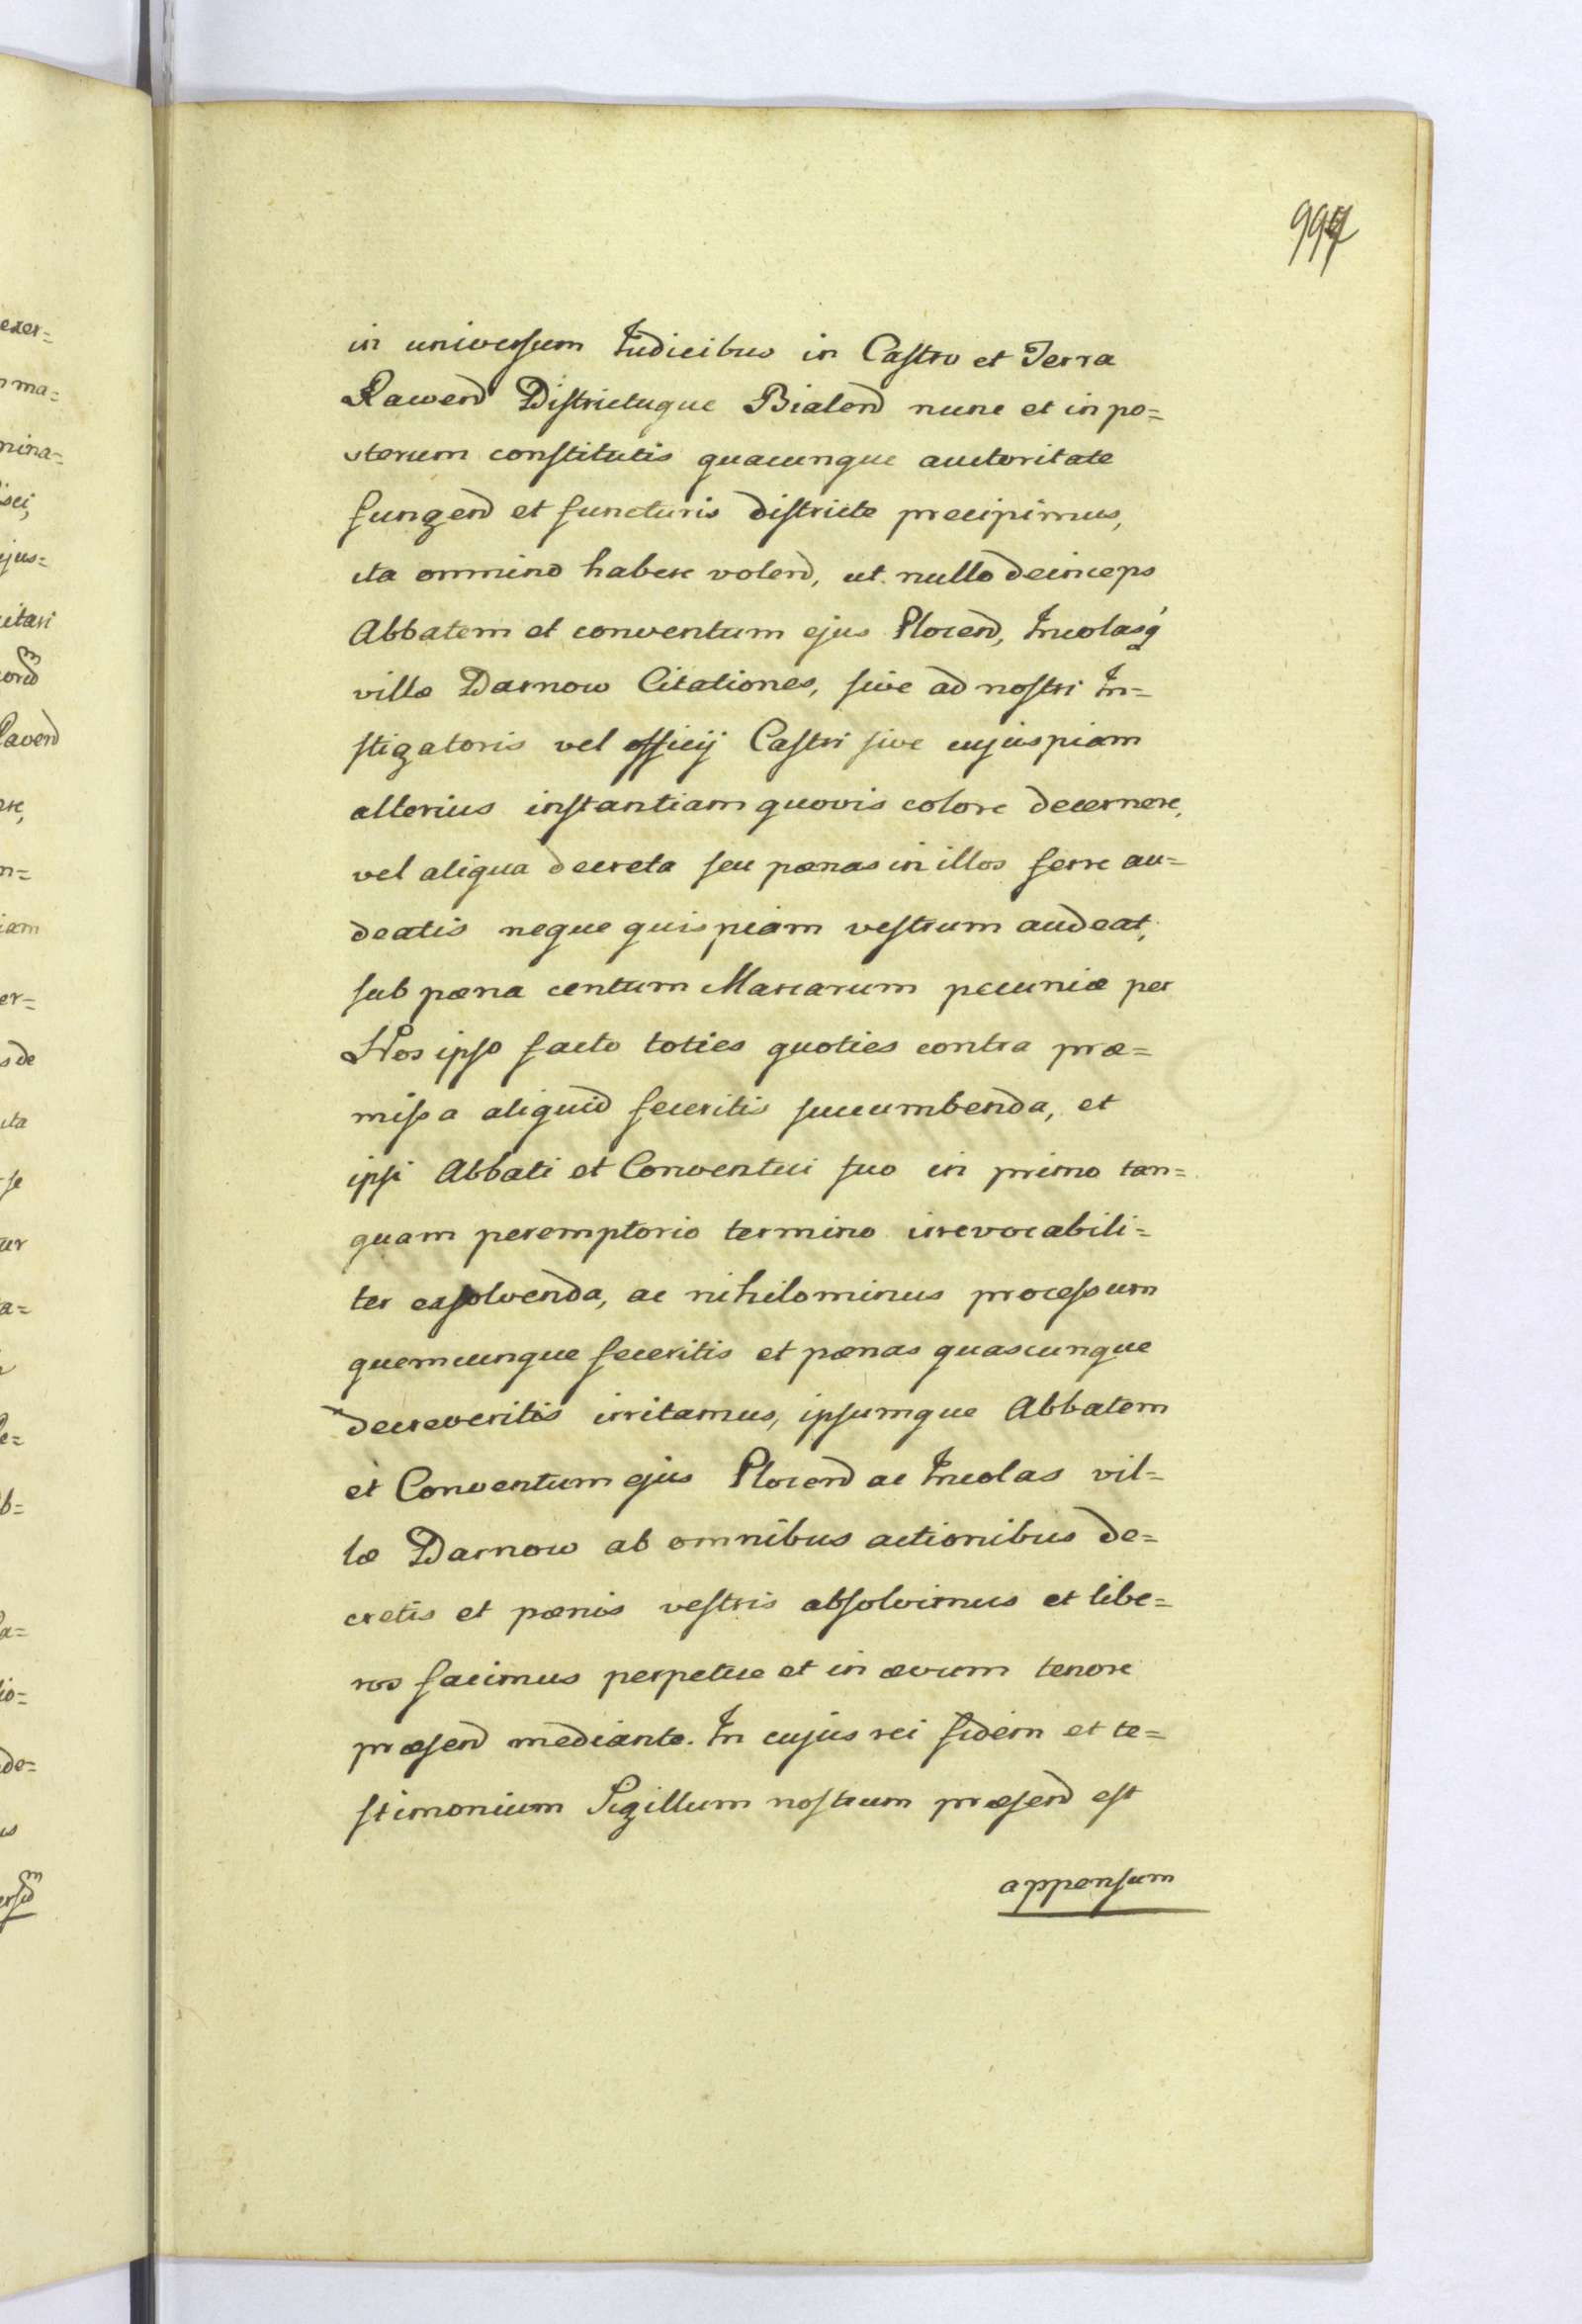 997
in universum Judicibus in Castro et Terra
Rawend Districtuque Bialend nunc et in po=
sterum constitutis quacunque auctoritate
fungend et functuris districte precipimus,
ita omnino habere volend, ut nullo deinceps
Abbatem et conventum ejus Plocend, Incolasq́
villæ Darnow Citationes, sive ad nostri In=
stigatoris vel officij Castri sive cujuspiam
alterius instantiam quovis colore decernere,
vel aliqua decreta seu pœnas in illos ferre au=
deatis neque quispiam vestrum audeat,
sub pœna centum Marcarum pecuniæ per
Vos ipso facto toties quoties contra præ=
missa aliquid feceritis succumbenda, et
ipsi Abbati et Conventui suo in primo tan=
quam peremptorio termino irrevocabili=
ter exsolvenda, ac nihilominus processum
quemcunque feceritis et pœnas quascunque
decreveritis irritamus, ipsumque Abbatem
et Conventum ejus Plocend ac Incolas vil=
læ Darnow ab omnibus actionibus de=
cretis et pœnis vestris absolvimus et libe=
ros facimus perpetue et in ævum tenore
præsend mediante. In cujus rei fidem et te=
stimonium Sigillum nostrum præsend est
appensum
exer=
ma=
mina=
ejus=
citari
Ravend
er=
ita
se